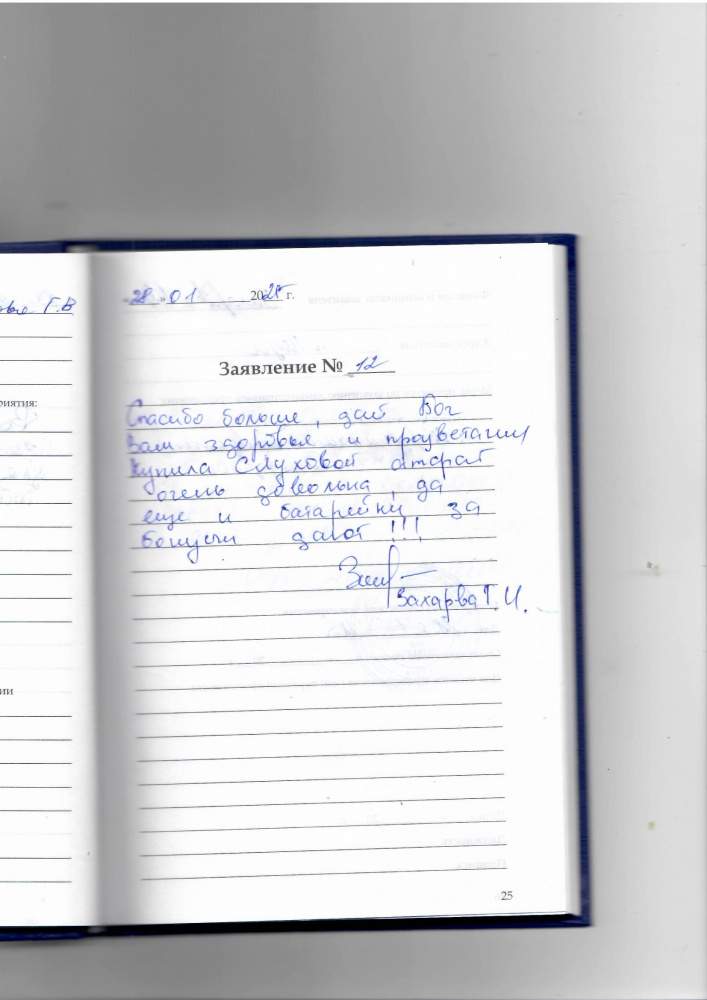 Г.В
риятия:
ии
«28» 01 2025 г.
Заявление № 12
Спасибо больше, дай Бог
Вам здоровья и процветания
Купила Слуховой апарат
очень довольна, да
еще и батарейки за
бонусы дают!!!
Захарва Т.И.
25